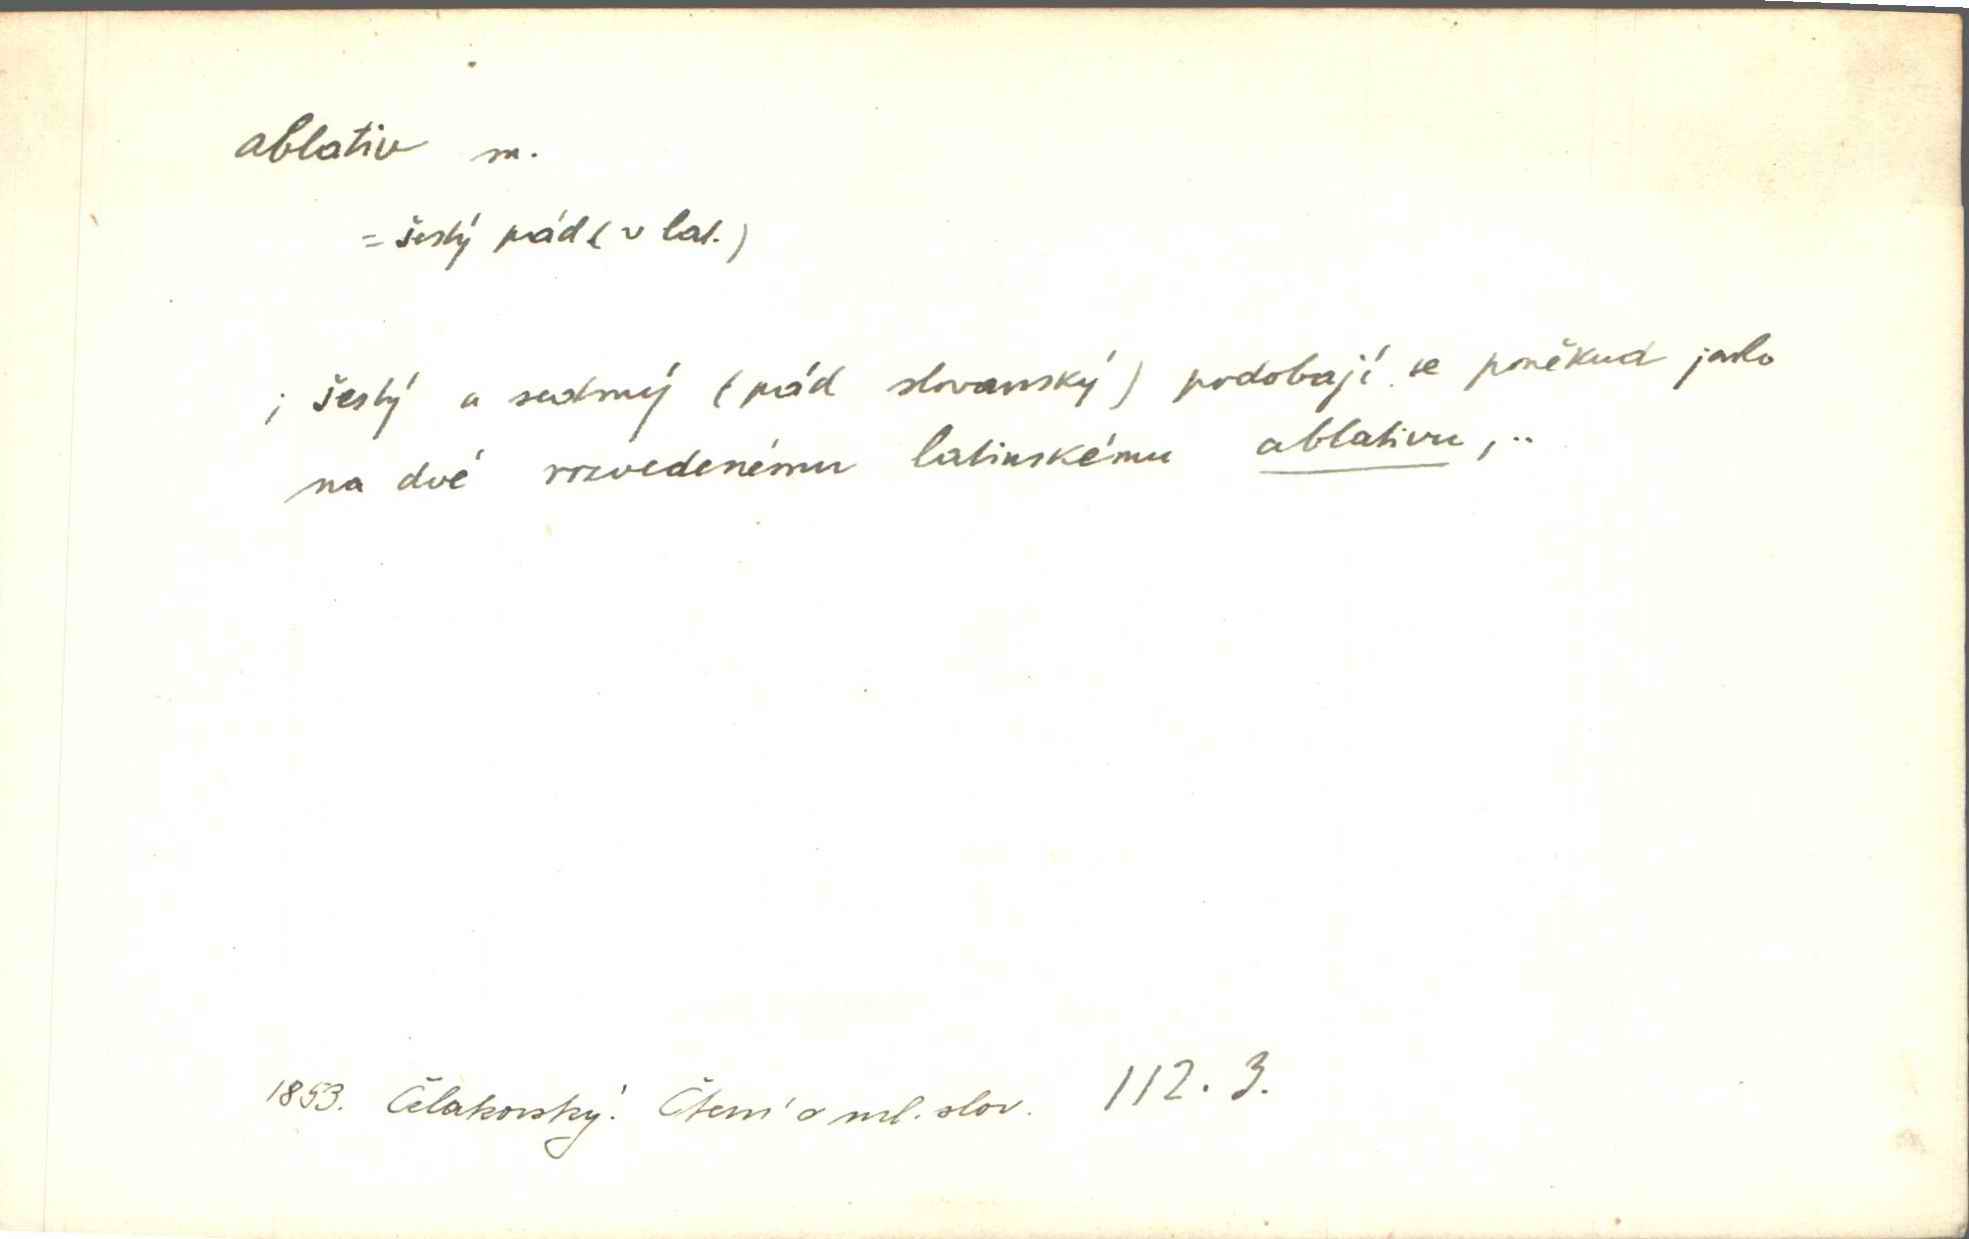 ablativ m.
= šestý pád (v lat.)
; šestý a sedmý (pád slovanský) podobají se poněkud jako
na dvé rozvedenému latinskému ablativu, ..
1853. Čelakovský: Čtení o ml. slov. 112. 3.